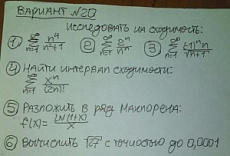 ВАРИАНТ №20
ИССЛЕДОВАТЬ НА СХОДИМОСТЬ:
① ∑ n=1 ∞ ② ∑ n=1 ∞ ③ ∑ n=1 ∞
④ НАЙТИ ИНТЕРВАЛ СХОДИМОСТИ:
∑ n=1 ∞ xⁿ/(2n)!
⑤ РАЗЛОЖИТЬ В РЯД МАКЛОРЕНА:
f(x)= ln(1+x)/x
⑥ ВЫЧИСЛИТЬ С ТОЧНОСТЬЮ ДО 0,0001